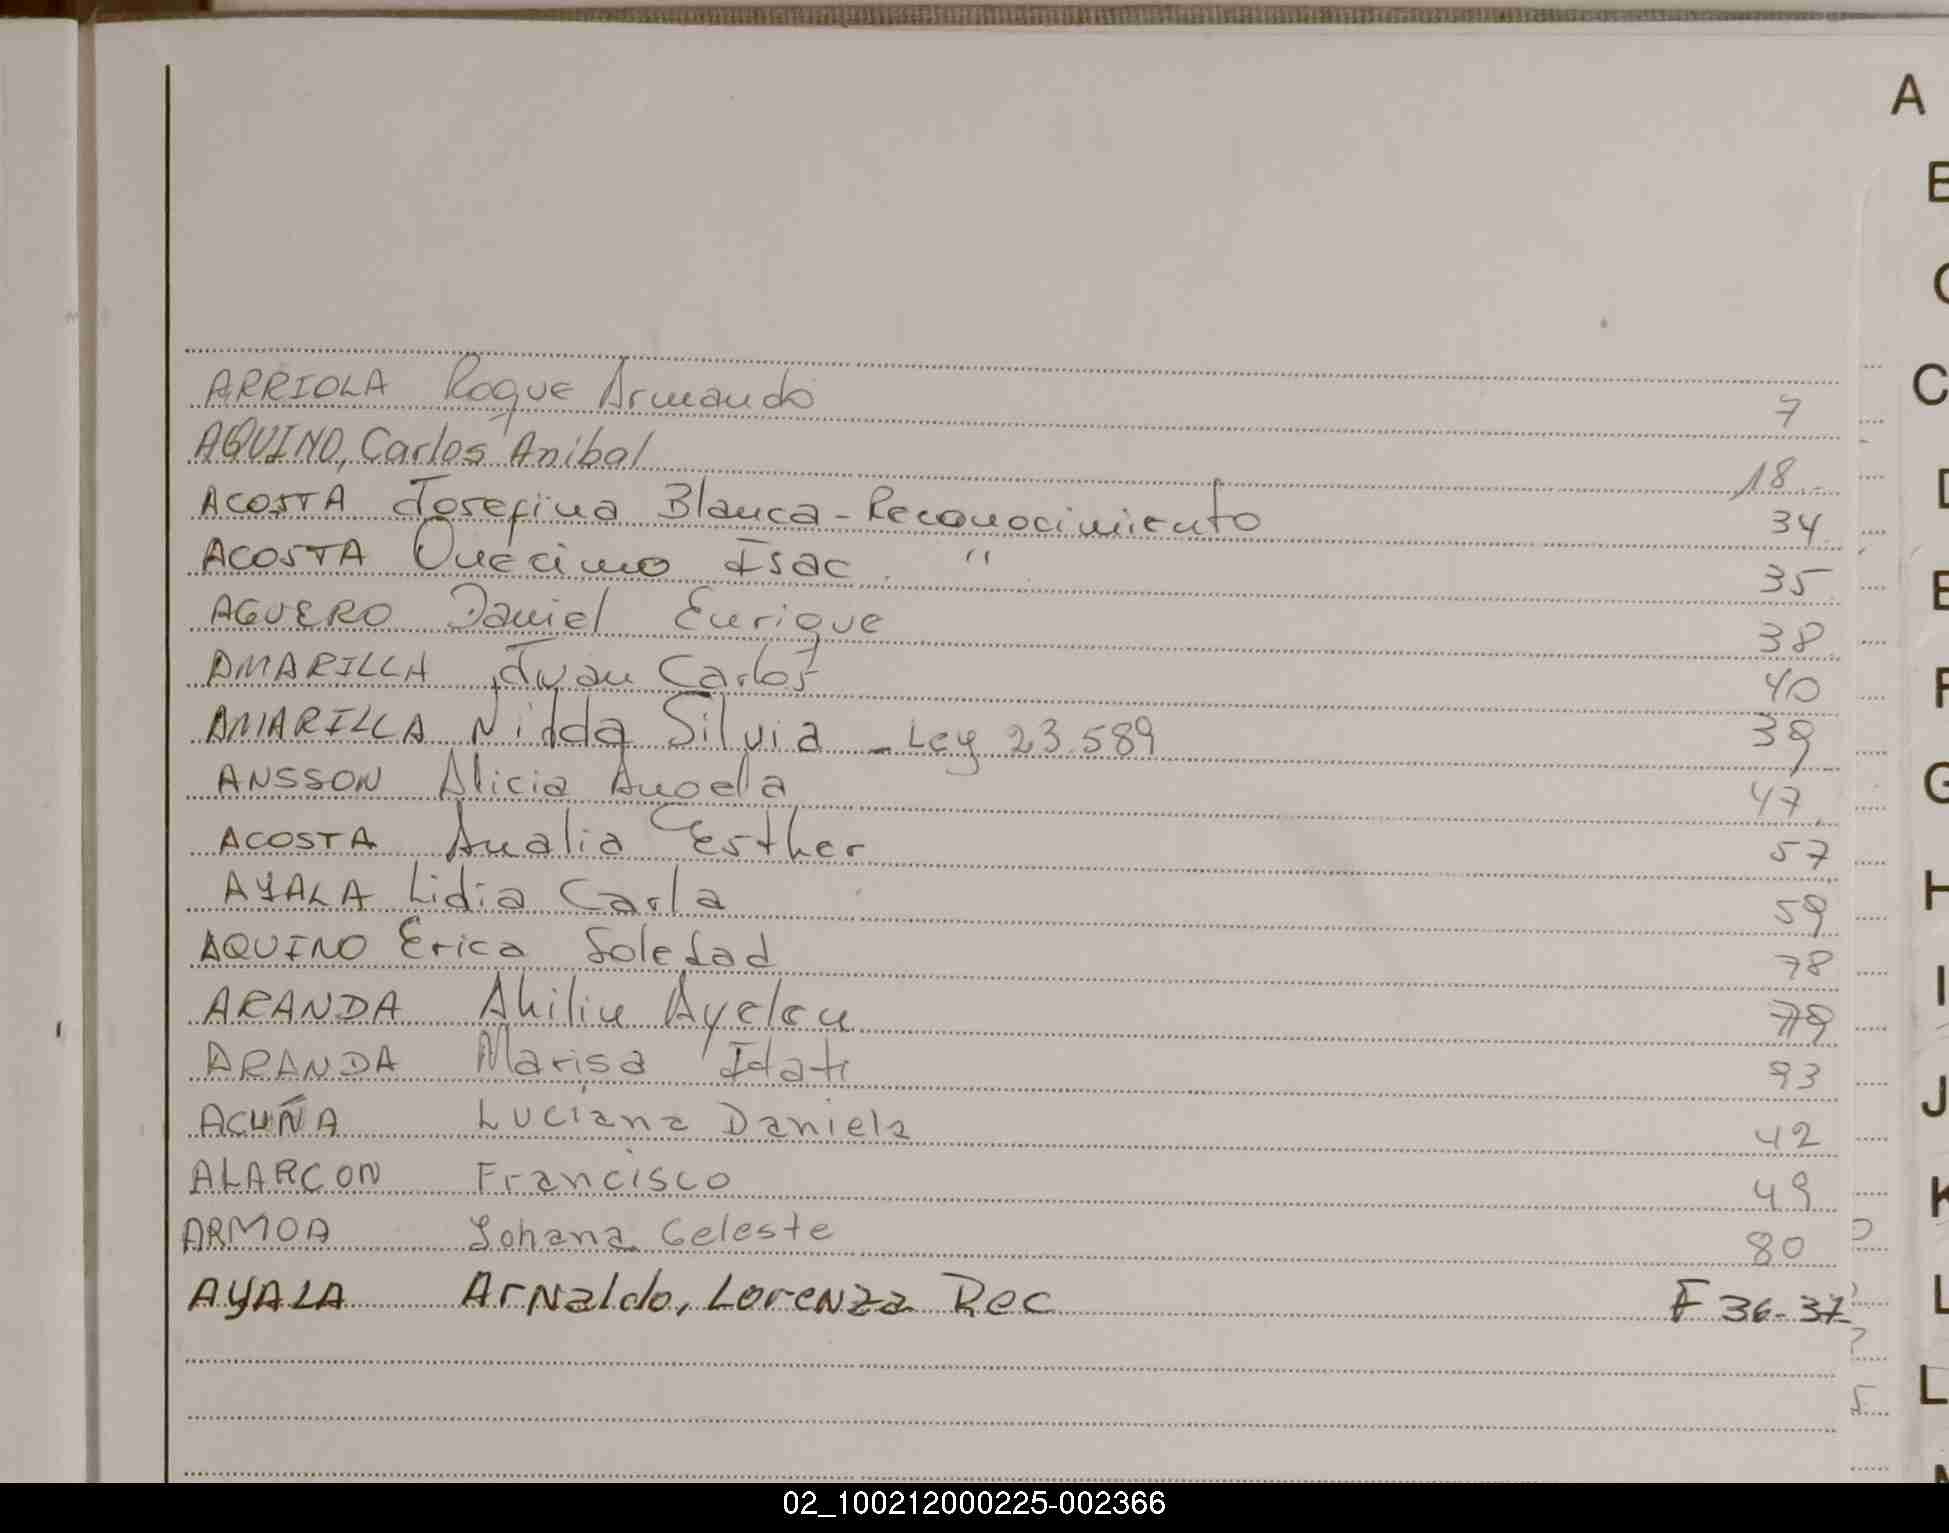 A
B
C
C
D
E
F
G
H
I
J
K
L
L
ARRIOLA Roque Armando 7
AQUINO, Carlos Anibal 18
ACOSTA Josefina Blanca - Reconocimiento 34
ACOSTA Onecimo Isac " 35
AGUERO Daniel Enrique 38
AMARILLA Juan Carlos 40
AMARILLA Nidda Silvia - Ley 23.589 39
ANSSON Alicia Angela 47
ACOSTA Analia Esther 57
AYALA Lidia Carla 59
AQUINO Erica Soledad 78
ARANDA Ayelen 79
ARANDA Marisa Itati 93
ACUÑA Luciana Daniela 42
ALARCON Francisco 49
ARMOA Yohana Celeste 80
AYALA Arnaldo, Lorenza Rec F 36-37
02_100212000225-002366